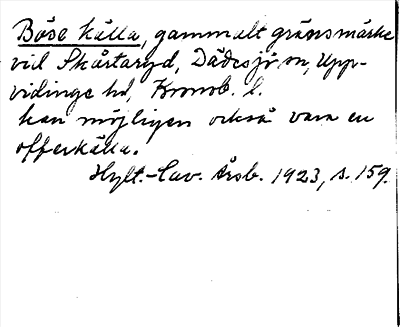 Böse källa, gammalt gränsmärke
vid Skårtaryd, Dädesjö sn, Upp-
vidinge hd, Kronob. l.
kan möjligen också vara en
offerkälla.
Hylt.-Cav. Årsb. 1923, s. 159.